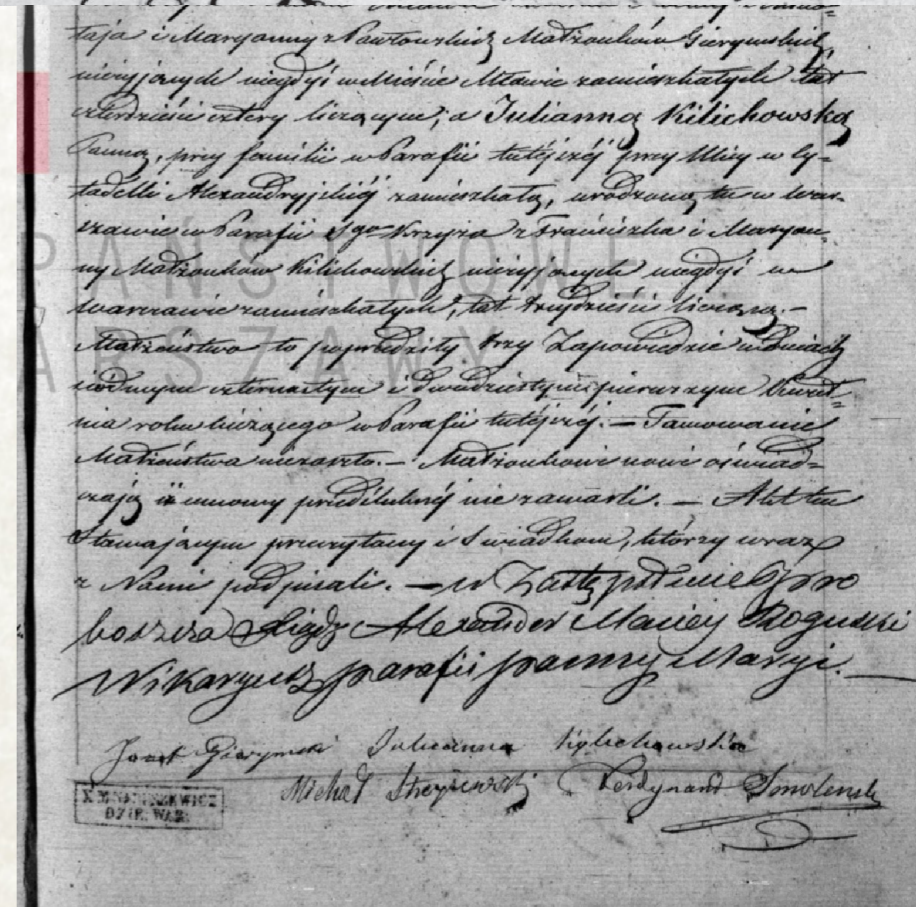 taja i Maryanny z Pawłowskich Małżonków Gierymskich
nieżyjących niegdyś w Mieście Mławie zamieszkałych lat
czterdzieści cztery liczącym; a Julianną Kilichowską
Panną, przy familii w Parafii tutéjszéj przy Ulicy w Cy-
tadelli Alexandryjskiéj zamieszkałą, urodzoną tu w War-
szawie w Parafii Sgo Krzyża z Franciszka i Maryan-
ny Małżonków Kilichowskich nieżyjących niegdyś w
Warszawie zamieszkałych, lat trzydzieści liczącą. –
Małżeństwo to poprzedziły trzy Zapowiedzie w dniach
siódmym czternastym i dwudziestym pierwszym Kwiet=
nia roku bieżącego w Parafii tutéjszéj. – Tamowanie
Małżeństwa niezaszło. – Małżonkowie nowi oświad=
czają iż umowy przedślubnéj nie zawarli. – Akt ten
Stawającym przeczytany i Świadkom, którzy wraz
z Nami podpisali. – w Zastępstwie Pro
boszcza Xiądz Alexander Maciey Rogulski
Wikaryusz parafii panny Maryi.
Józef Gierymski Julianna Kylichowska
Michał Ferdynand Smolenski
PAŃSTWOWE
WARSZAWY
DZIE. WAR.